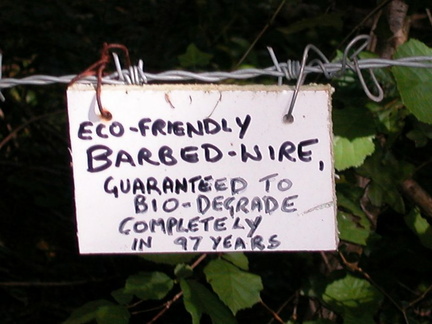 ECO-FRIENDLY
BARBED-WIRE,
GUARANTEED TO
BIO-DEGRADE
COMPLETELY
IN 97 YEARS